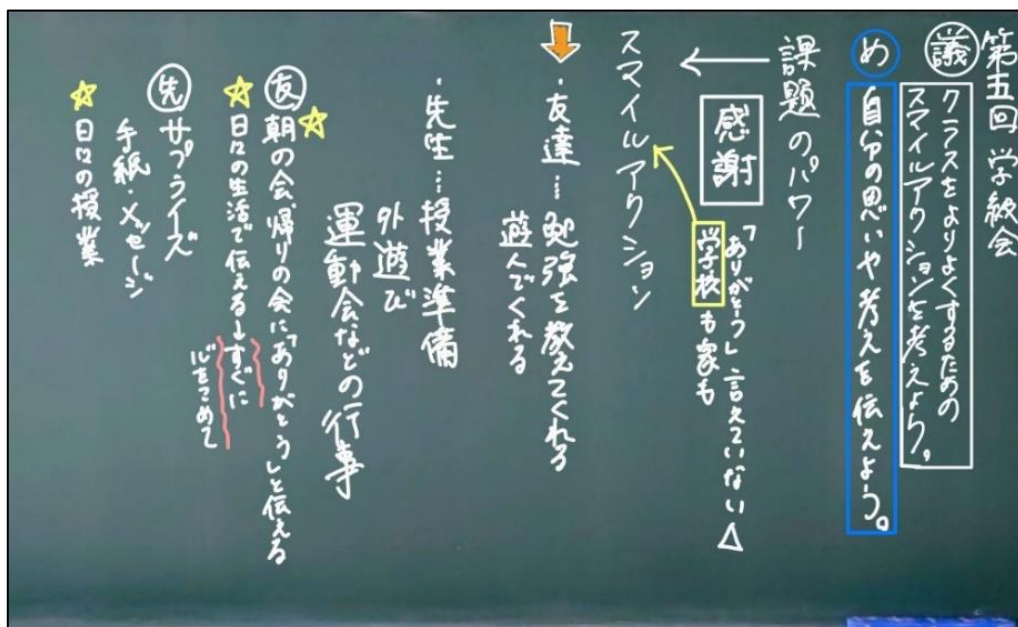 第五回 学級会
議 クラスをよりよくするための
スマイルアクションを考えよう。
め 自分の思いや考えを伝えよう。
課題のパワー
感謝
「ありがとう」言えていない △
学校も家も
スマイルアクション
・友達…勉強を教えてくれる
遊んでくれる
・先生…授業準備
外遊び
運動会などの行事
友 朝の会、帰りの会に「ありがとう」と伝える
日々の生活で伝える→すぐに
心をこめて
先 サプライズ
手紙・メッセージ
日々の授業